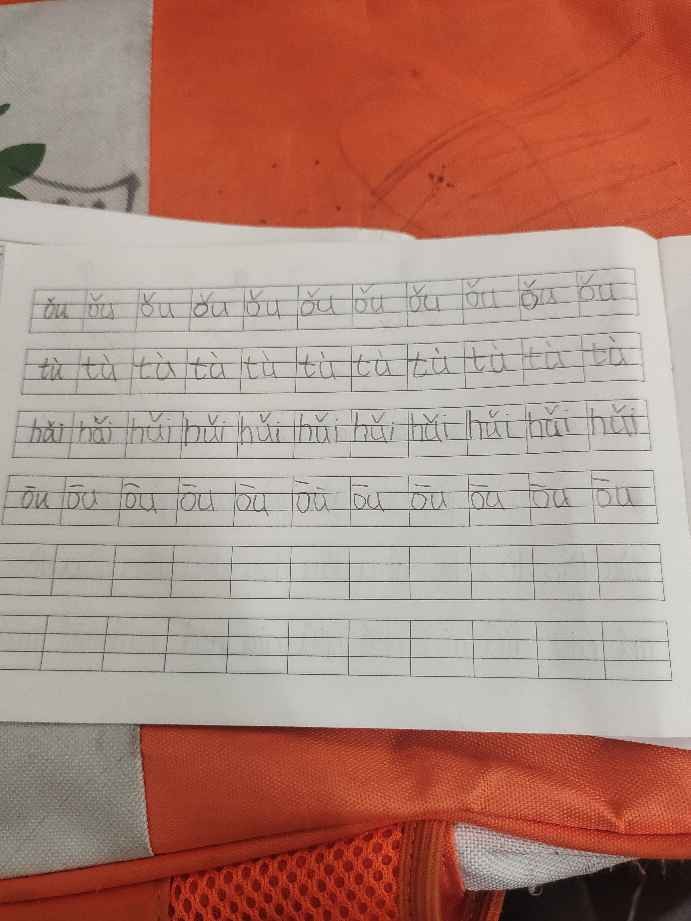 ǒu ǒu ǒu ǒu ǒu ǒu ǒu ǒu ǒu ǒu ǒu
tù tù tù tù tù tù tù tù tù tù tù
hǎi hǎi hǎi hǎi hǎi hǎi hǎi hǎi hǎi hǎi hǎi
ōu ōu ōu ōu ōu ōu ōu ōu ōu ōu ōu